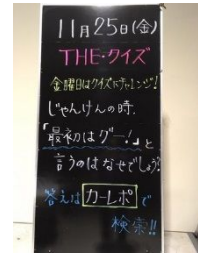 11月25日(金)
THE・クイズ
金曜日はクイズにチャレンジ!
じゃんけんの時、
「最初はグー!」と
言うのはなぜでしょう?
答えは カーレポ で
検索!!